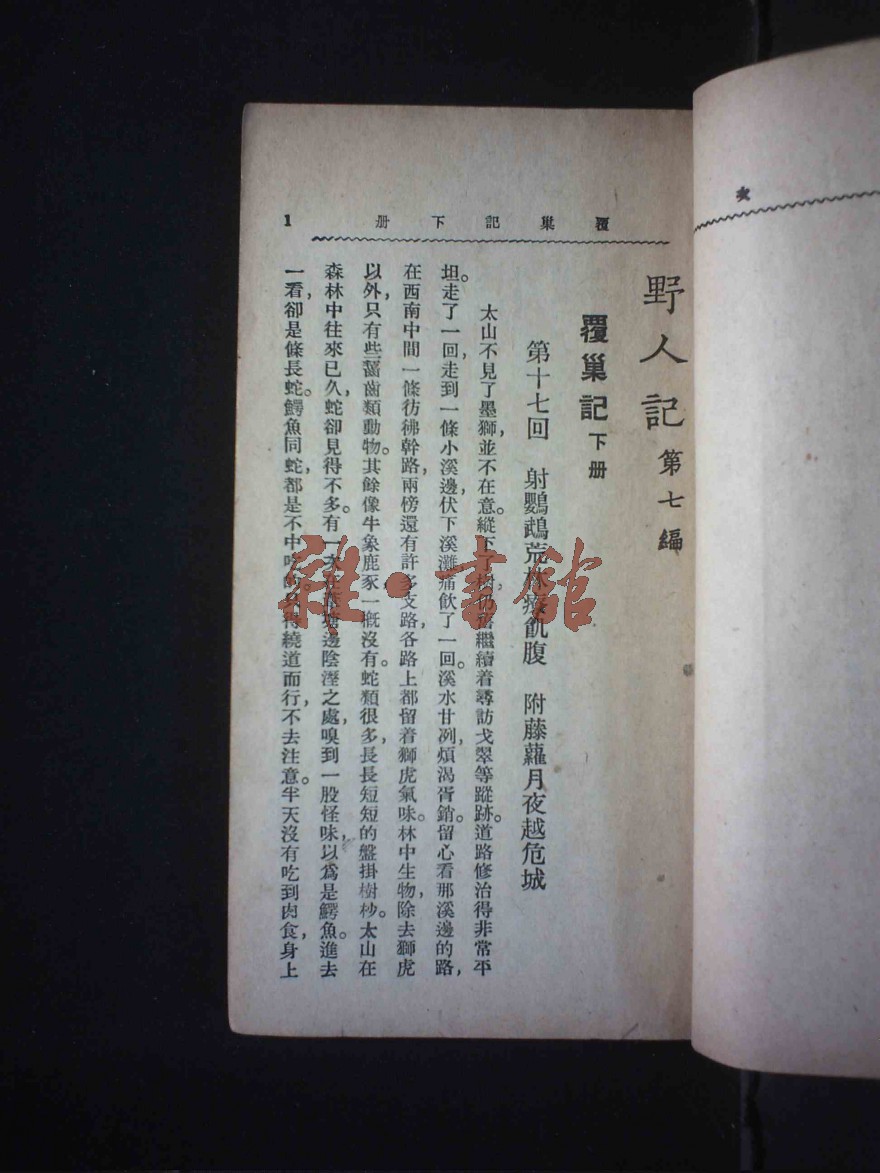 覆巢記下册 1
野人記 第七編
覆巢記 下册
第十七回 射鸚鵡荒林療飢腹 附藤蘿月夜越危城
太山不見了墨獅，並不在意。縱下了樹，繼續着尋訪戈翠等蹤跡。道路修治得非常平
坦。走了一回，走到一條小溪邊，伏下溪灘，痛飲了一回。溪水甘冽，煩渴胥銷。留心看那溪邊的路，
在西南中間一條彷彿幹路，兩傍還有許多支路，各路上都留着獅虎氣味。林中生物，除去獅虎
以外，只有些齧齒類動物。其餘像牛象鹿豕，一概沒有。蛇類很多，長長短短的盤掛樹杪。太山在
森林中往來已久，蛇卻見得不多。有一次在邊陰溼之處，嗅到一股怪味，以爲是鰐魚。進去
一看，卻是條長蛇。鰐魚同蛇，都是不中吃的，只得繞道而行，不去注意。半天沒有吃到肉食，身上
雜·書館